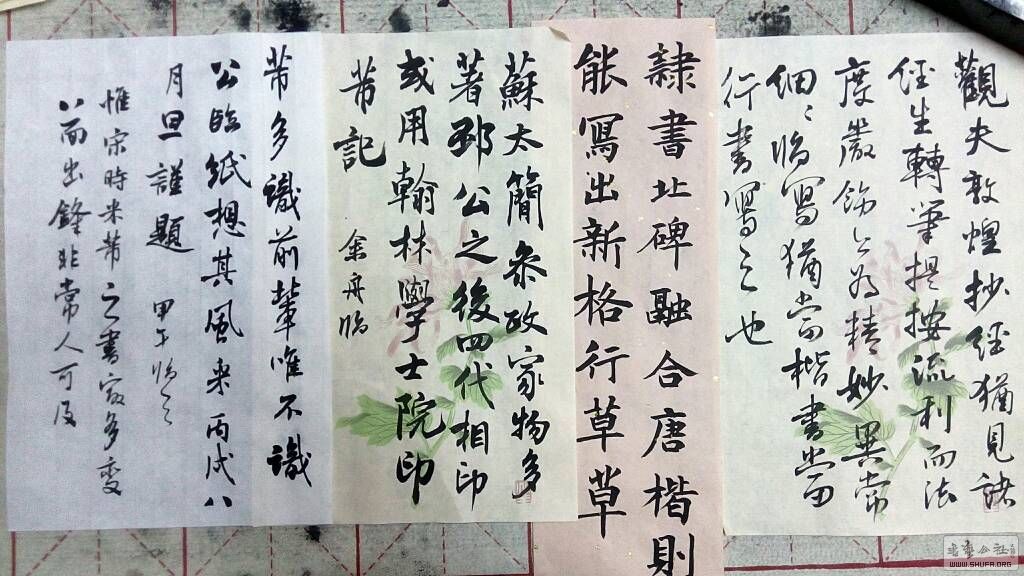 觀夫敦煌抄經猶見諸
經生轉筆提按流利而法
度嚴飭亦為精妙異常
細〻臨寫猶當楷書當
行書寫之也
隸書北碑融合唐楷則
能寫出新格行草草
蘇太簡參政家物多
著邳公之後四代相印
或用翰林學士院印
芾記 余舟臨
芾多識前輩唯不識
公臨紙想其風采丙戌八
月旦謹題 甲午臨之
惟宋時米芾之書最多變
八面出鋒非常人可及
WWW.SHUFA.ORG